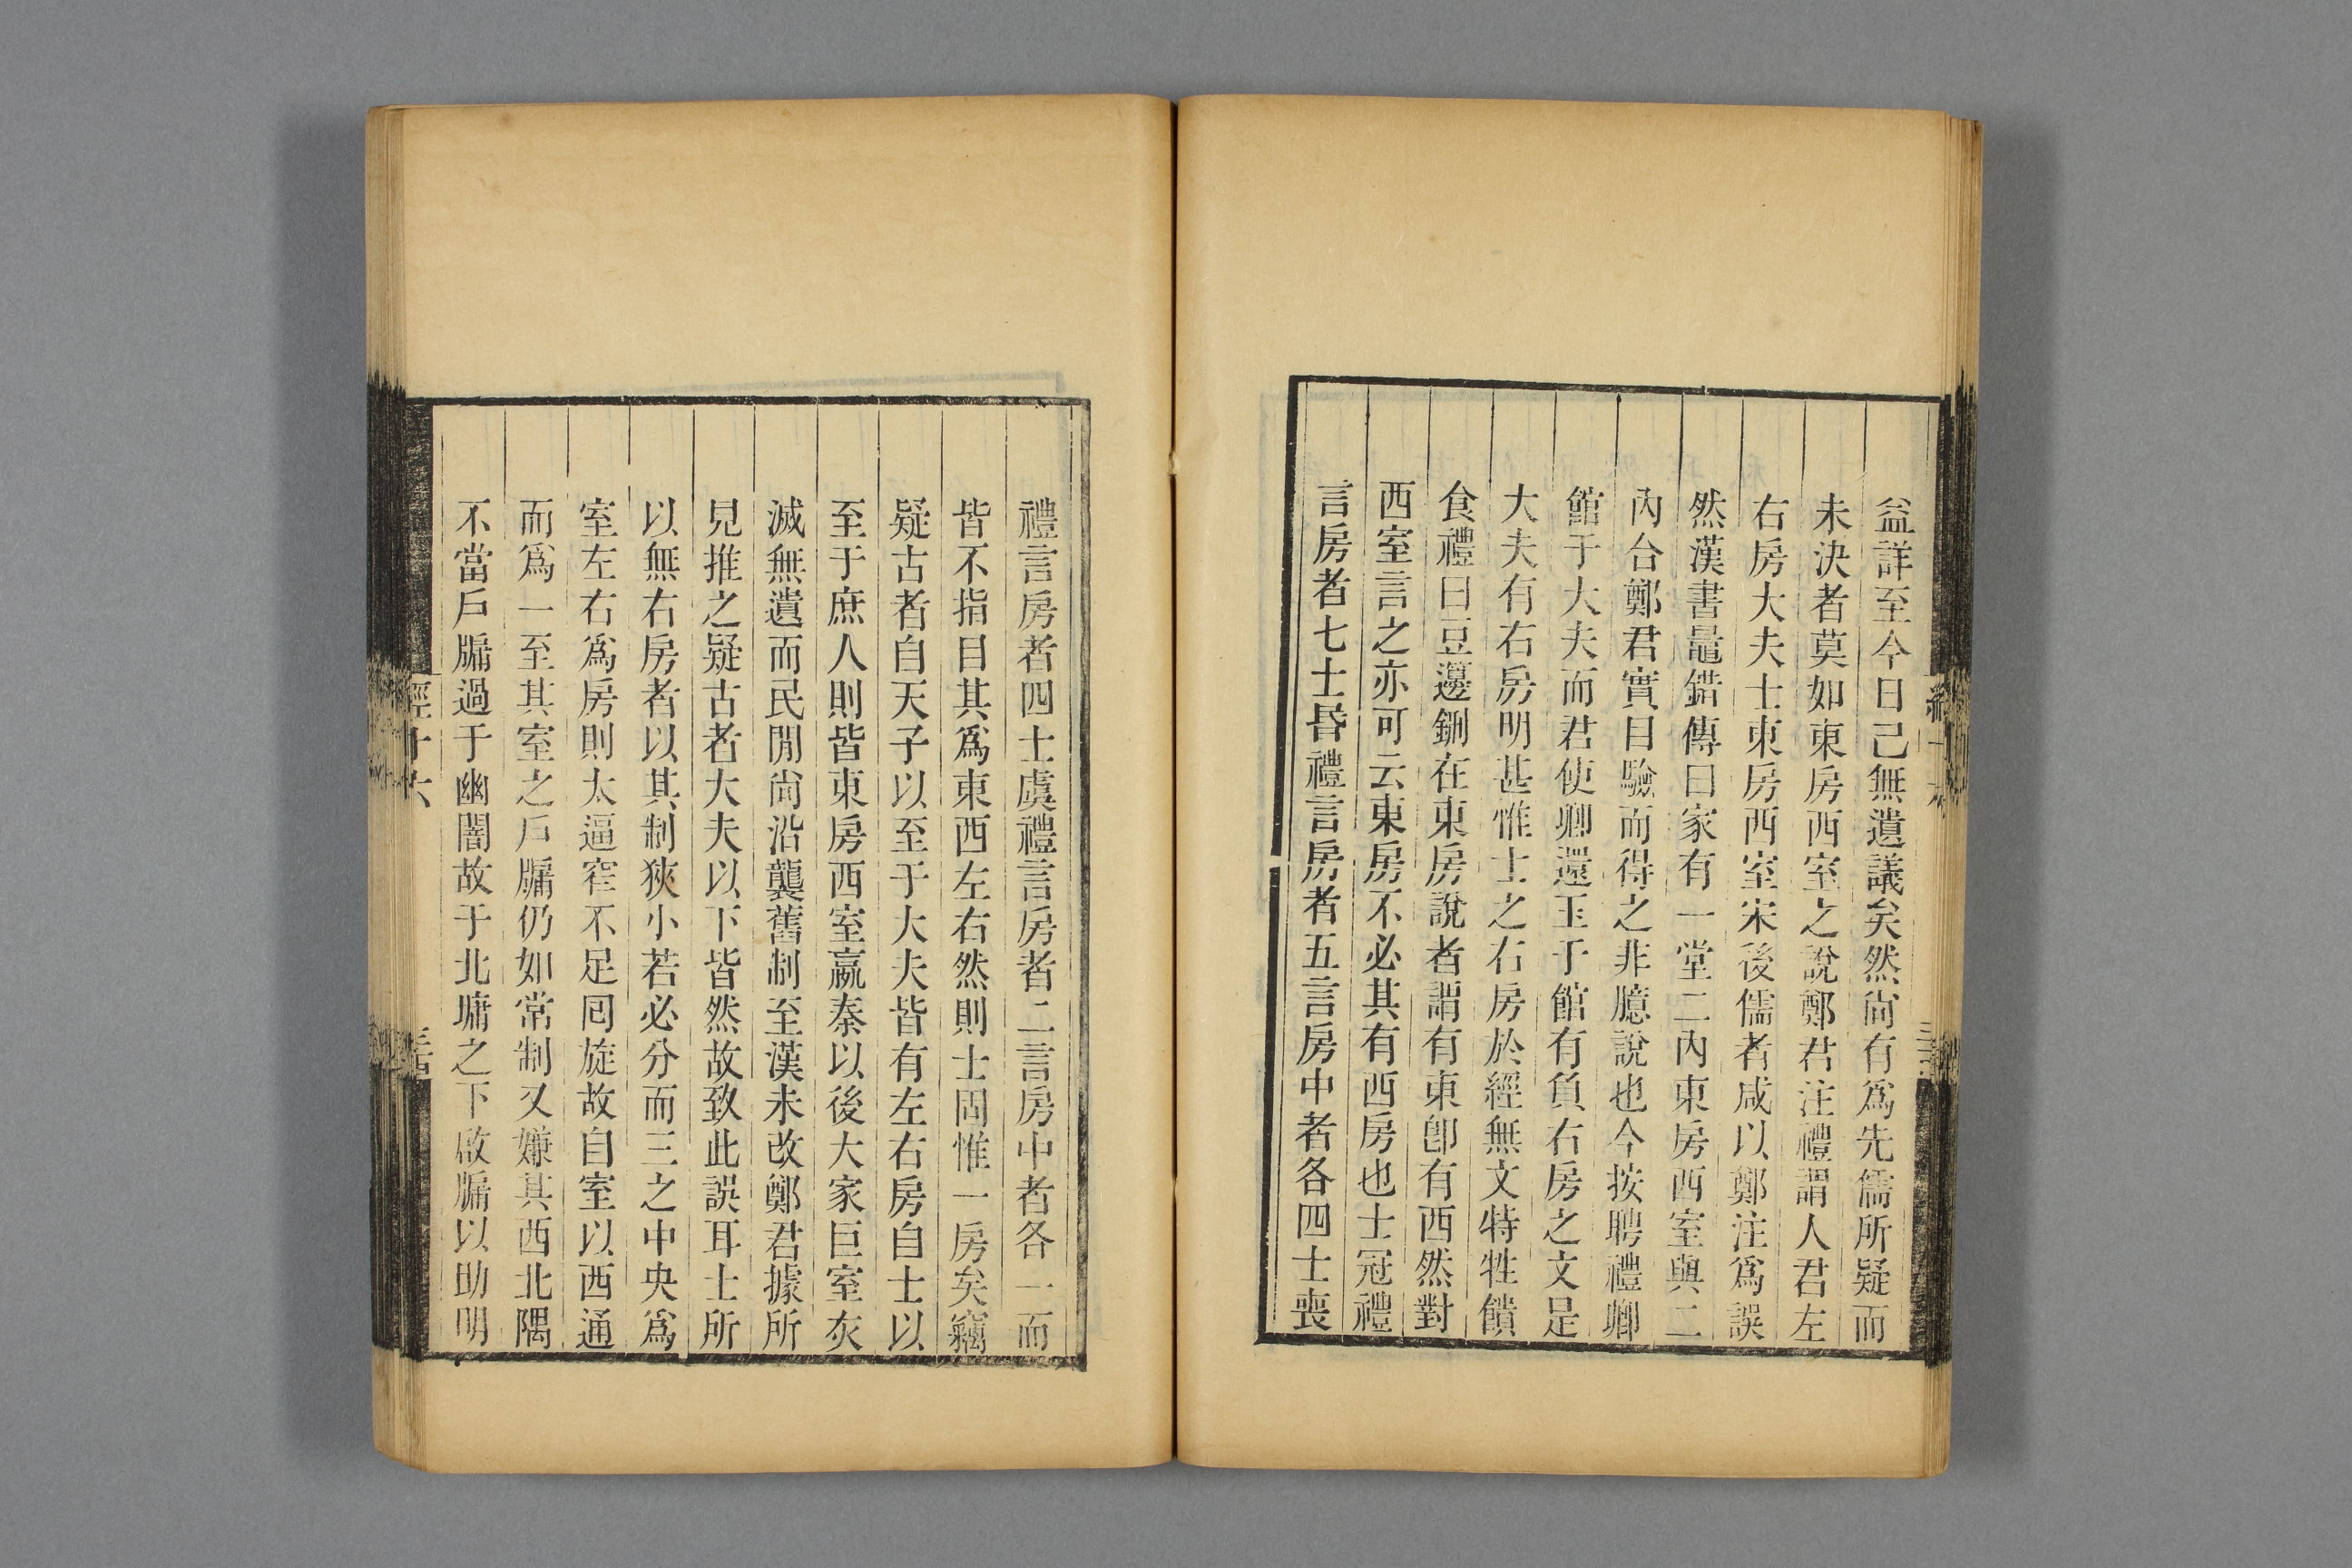 益詳至今日己無遺議矣然尙有爲先儒所疑而
未決者莫如東房西室之說鄭君注禮謂人君左
右房大夫士東房西室宋後儒者咸以鄭注爲誤
然漢書鼂錯傳曰家有一堂二內東房西室與二
內合鄭君實目驗而得之非臆說也今按聘禮卿
館于大夫而君使卿還玉于館有負右房之文足
大夫有右房明甚惟士之右房於經無文特牲饋
食禮曰豆籩鉶在東房說者謂有東卽有西然對
西室言之亦可云東房不必其有西房也士冠禮
言房者七士昏禮言房者五言房中者各四士喪
禮言房者四士虞禮言房者二言房中者各一而
皆不指目其爲東西左右然則士固惟一房矣竊
疑古者自天子以至于大夫皆有左右房自士以
至于庶人則皆東房西室嬴秦以後大家巨室灰
滅無遺而民閒尙沿襲舊制至漢未改鄭君據所
見推之疑古者大夫以下皆然故致此誤耳士所
以無右房者以其制狹小若必分而三之中央爲
室左右爲房則太逼窄不足囘旋故自室以西通
而爲一至其室之戶牖仍如常制又嫌其西北隅
不當戶牖過于幽闇故于北墉之下啟牖以助明
經十六